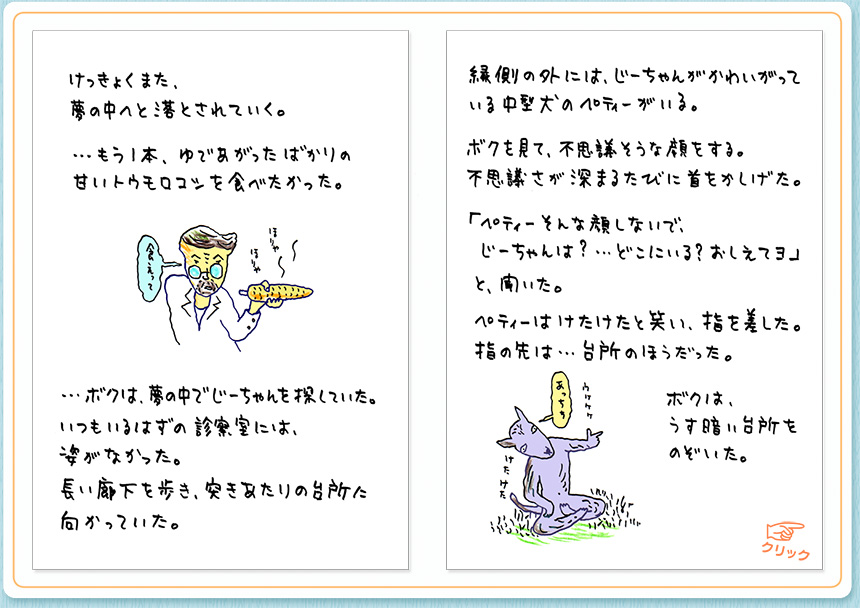 けっきょくまた、
夢の中へと落とされていく。
…もう1本、ゆであがったばかりの
甘いトウモロコシを食べたかった。
食えって
ほりゃ
ほりゃ
…ボクは、夢の中でじーちゃんを探していた。
いつもいるはずの診察室には、
姿がなかった。
長い廊下を歩き、突きあたりの台所に
向かっていた。
縁側の外には、じーちゃんがかわいがって
いる中型犬のペティーがいる。
ボクを見て、不思議そうな顔をする。
不思議さが深まるたびに首をかしげた。
「ペティーそんな顔しないで、
じーちゃんは?…どこにいる?おしえてヨ」
と、聞いた。
ペティーはけたけたと笑い、指を差した。
指の先は…台所のほうだった。
あっちす
ウケケケ
けたけた
ボクは、
うす暗い台所を
のぞいた。
クリック